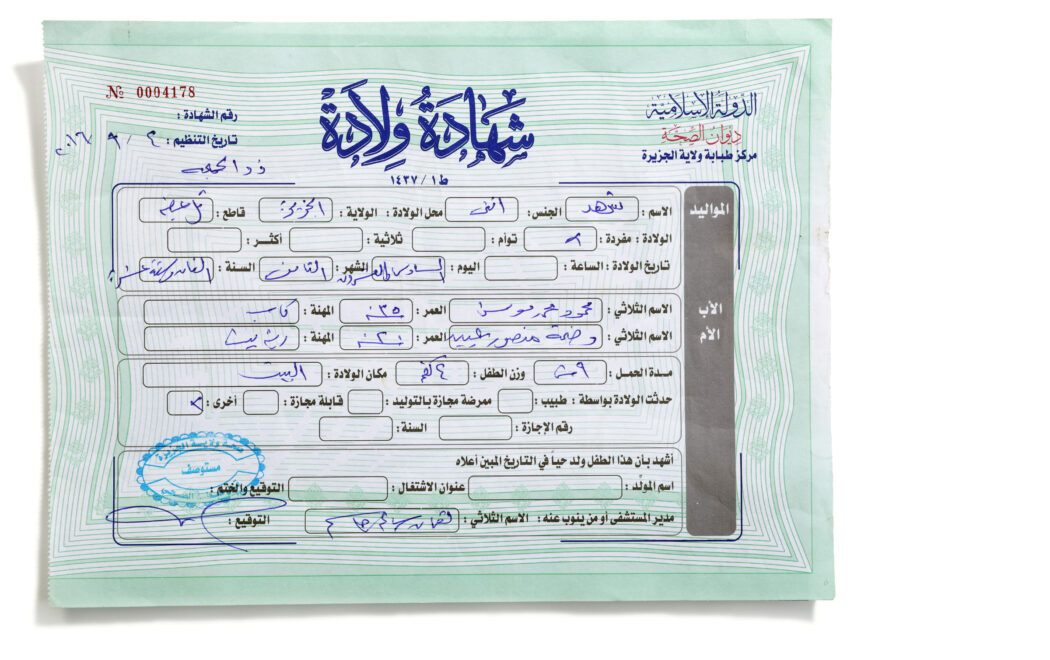 № 0004178
الدولة الإسلامية
ديوان الصحة
مركز طبابة ولاية الجزيرة
شهادة ولادة
ط١ / ١٤٣٧
رقم الشهادة :
تاريخ التنظيم : ٤ / ٩ / ٢٠١٦
المواليد
الاسم : شهد الجنس : انثى محل الولادة : الولاية : الجزيرة قاطع :
الولادة : مفردة : توأم : ثلاثية : أكثر :
تاريخ الولادة : الساعة : اليوم : السادس والعشرون الشهر : الثامن السنة : الفان وستة عشر
الأب
الاسم الثلاثي : محمود محمد موسى العمر : ٣٥ سنة المهنة : كاسب
الأم
الاسم الثلاثي : وضحة منصور العمر : ٢٠ سنة المهنة : ربة بيت
مدة الحمل : ٩ وزن الطفل : ٤ كغم مكان الولادة : البيت
حدثت الولادة بواسطة : طبيب : ممرضة مجازة بالتوليد : قابلة مجازة : أخرى :
رقم الإجازة : السنة :
أشهد بأن هذا الطفل ولد حياً في التاريخ المبين أعلاه
اسم المولّد : عنوان الاشتغال : التوقيع والختم :
مدير المستشفى أو من ينوب عنه : الاسم الثلاثي : التوقيع :
صحة ولاية الجزيرة
مستوصف